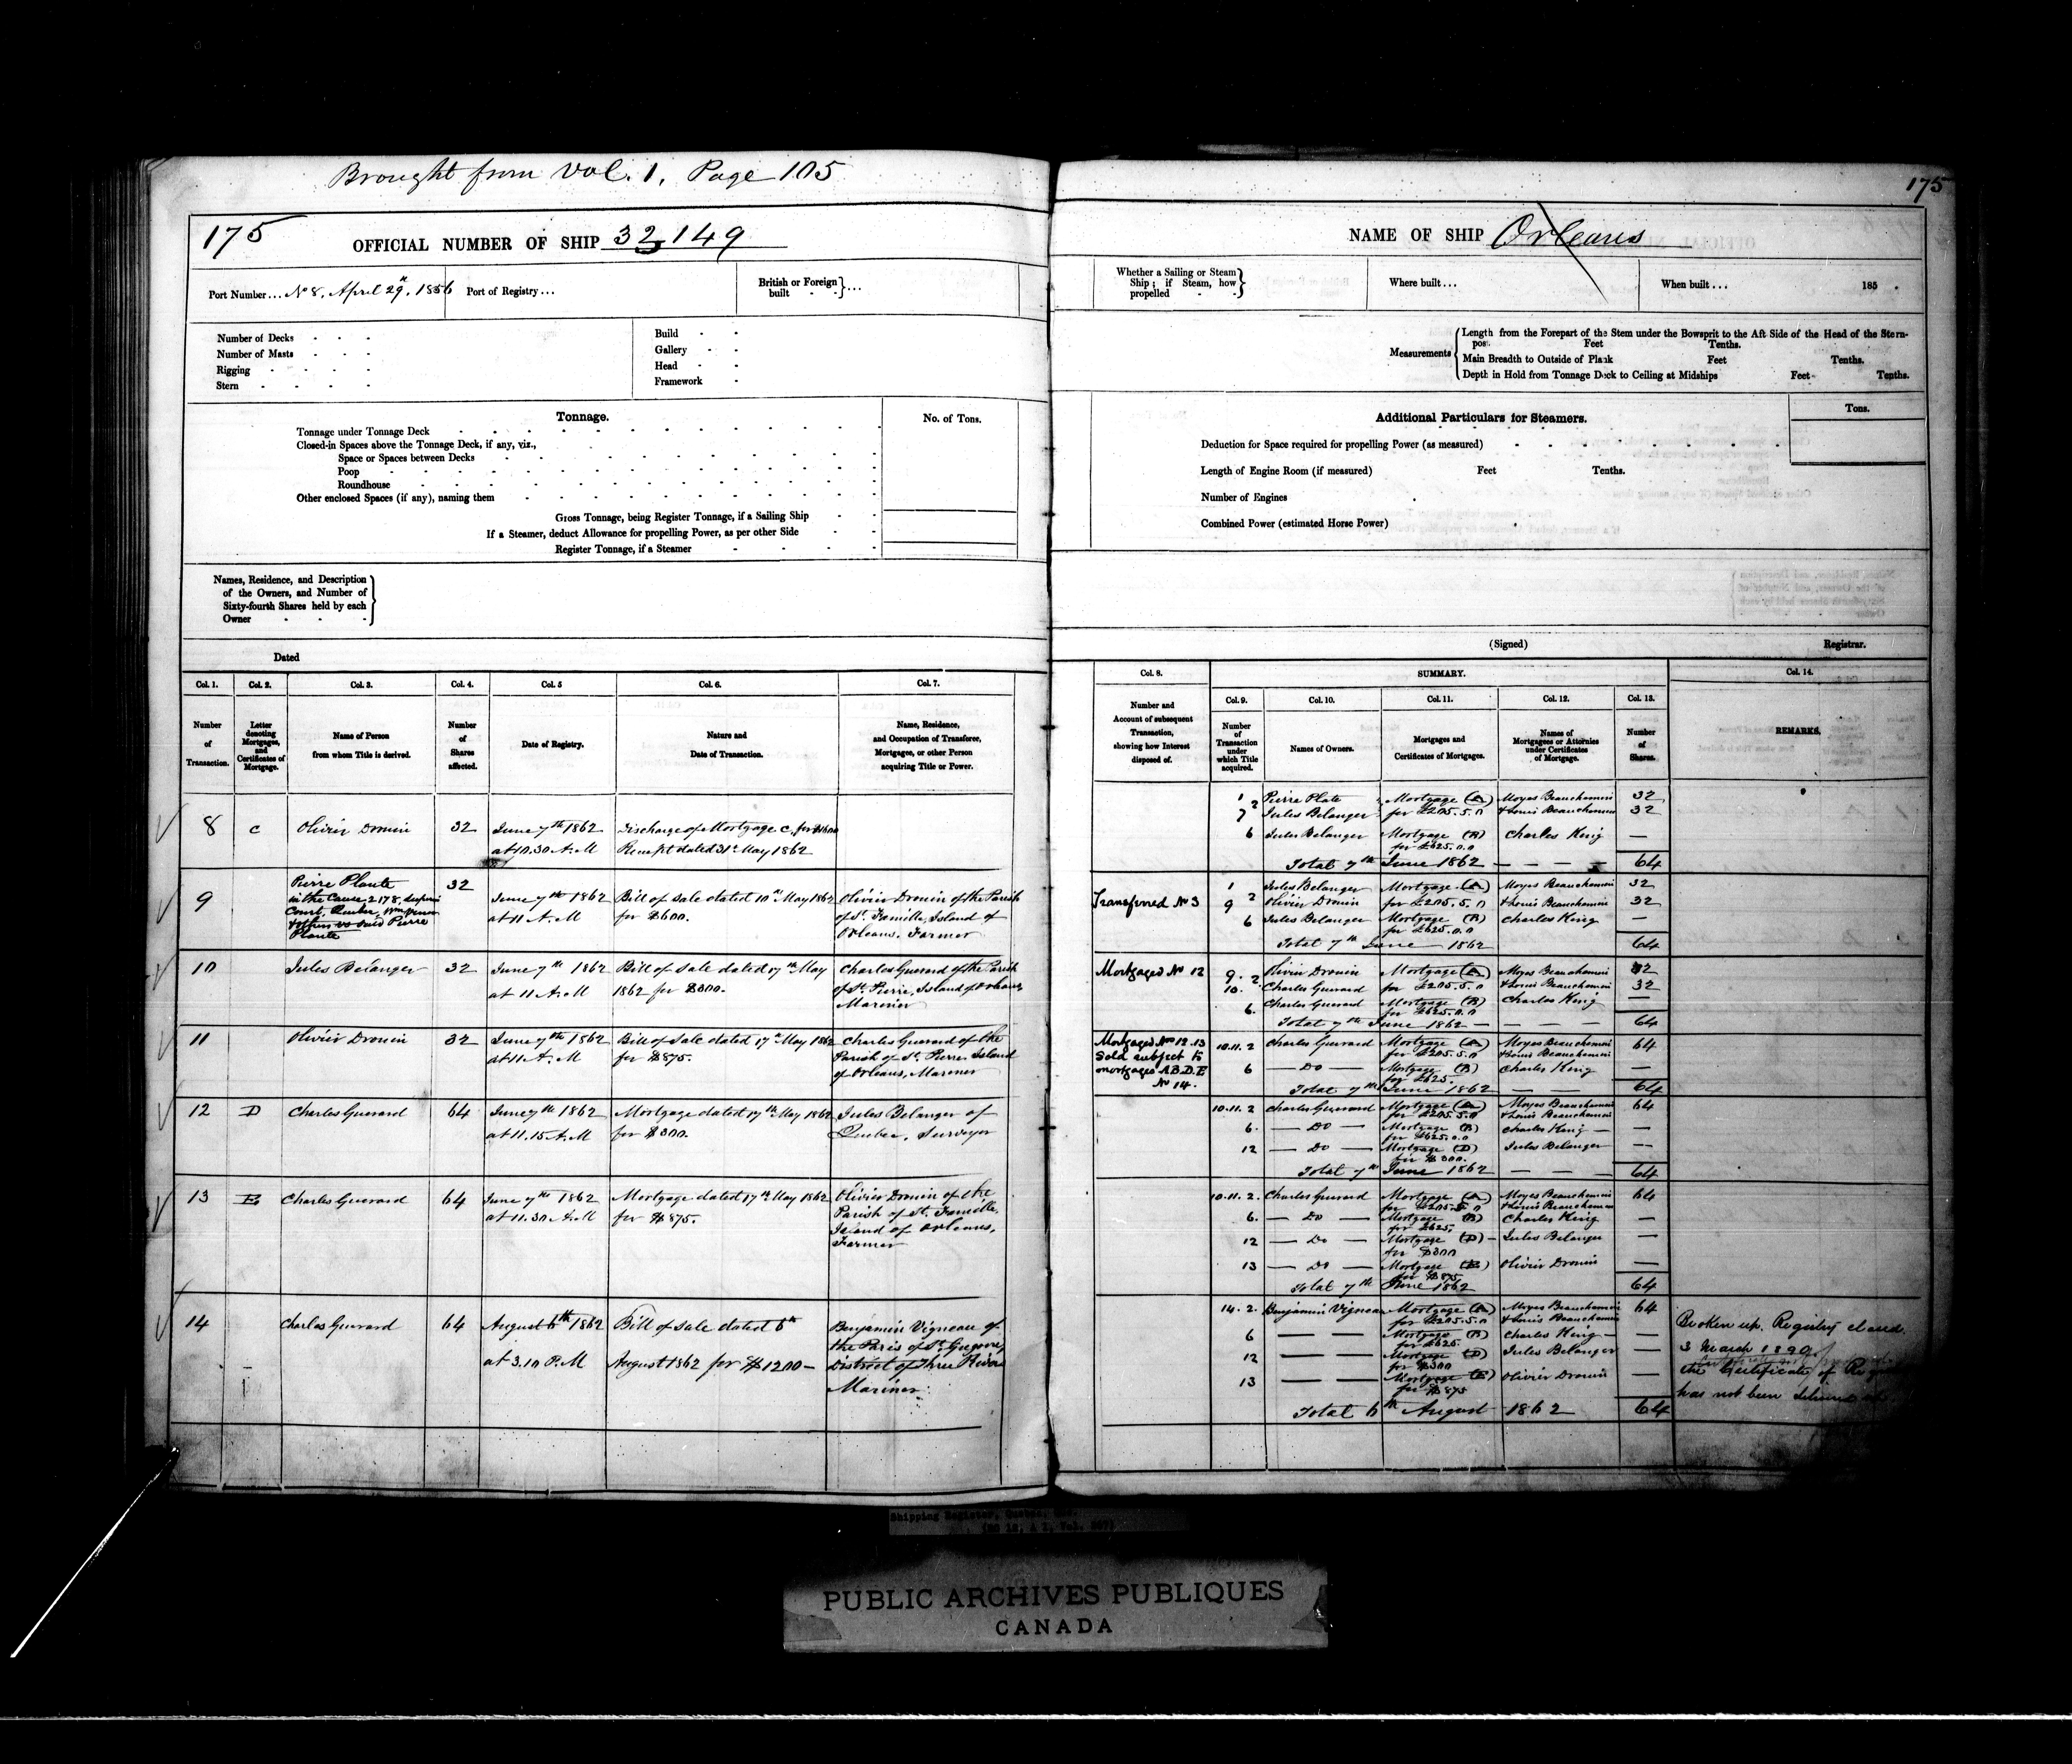 Brought from Vol. 1, Page 105
175
175
OFFICIAL NUMBER OF SHIP 32149
NAME OF SHIP Orleans
Port Number... No 8, April 29, 1856
Port of Registry...
British or Foreign built - - } ...
Whether a Sailing or Steam Ship; if Steam, how propelled - - }
Where built...
When built... 185 .
Number of Decks
Number of Masts
Rigging
Stern
Build
Gallery
Head
Framework
Measurements { Length from the Forepart of the Stem under the Bowsprit to the Aft Side of the Head of the Stern-
post Feet Tenths.
Main Breadth to Outside of Plank Feet Tenths.
Depth in Hold from Tonnage Deck to Ceiling at Midships Feet Tenths.
Tonnage.
No. of Tons.
Tonnage under Tonnage Deck
Closed-in Spaces above the Tonnage Deck, if any, viz.,
Space or Spaces between Decks
Poop
Roundhouse
Other enclosed Spaces (if any), naming them
Gross Tonnage, being Register Tonnage, if a Sailing Ship
If a Steamer, deduct Allowance for propelling Power, as per other Side
Register Tonnage, if a Steamer
Additional Particulars for Steamers.
Tons.
Deduction for Space required for propelling Power (as measured)
Length of Engine Room (if measured) Feet Tenths.
Number of Engines
Combined Power (estimated Horse Power)
Names, Residence, and Description
of the Owners, and Number of
Sixty-fourth Shares held by each
Owner
Dated
(Signed) Registrar.
Col. 1. Col. 2. Col. 3. Col. 4. Col. 5 Col. 6. Col. 7.
Number of Transaction.
Letter denoting Mortgages, and Certificates of Mortgage.
Name of Person from whom Title is derived.
Number of Shares affected.
Date of Registry.
Nature and Date of Transaction.
Name, Residence, and Occupation of Transferee, Mortgagee, or other Person acquiring Title or Power.
8 C Olivier Drouin 32 June 7th 1862 Discharge of Mortgage C, for
at 10.30 A.M Receipt dated 31st May 1862
9 Pierre Plante 32 June 7th 1862 Bill of Sale dated 10th May 1862 Olivier Drouin of the Parish
in the Cause 2178, Superior at 11 A.M for $600. of St. Famille, Island of
Court, Quebec, Orleans. Farmer
& others vs said Pierre
Plante
10 Jules Belanger 32 June 7th 1862 Bill of Sale dated 17th May Charles Guerard of the Parish
at 11 A.M 1862 for $300. of St. Pierre, Island of Orleans
Mariner
11 Olivier Drouin 32 June 7th 1862 Bill of Sale dated 17th May 1862 Charles Guerard of the
at 11 A.M for $875. Parish of St. Pierre Island
of Orleans, Mariner
12 D Charles Guerard 64 June 7th 1862 Mortgage dated 17th May 1862 Jules Belanger of
at 11.15 A.M for $300. Quebec, Surveyor
13 E Charles Guerard 64 June 7th 1862 Mortgage dated 17th May 1862 Olivier Drouin of the
at 11.30 A.M for $875. Parish of St. Famille
Island of Orleans,
Farmer
14 Charles Guerard 64 August 6th 1862 Bill of Sale dated 6th Benjamin Vigneau of
at 3.10 P.M August 1862 for $1200 – the Paris of St. Gregoire,
District of Three Rivers
Mariner
Col. 8. SUMMARY. Col. 14.
Col. 9. Col. 10. Col. 11. Col. 12. Col. 13.
Number and Account of subsequent Transaction, showing how Interest disposed of.
Number of Transaction under which Title acquired.
Names of Owners.
Mortgages and Certificates of Mortgages.
Names of Mortgagees or Attornies under Certificates of Mortgage.
Number of Shares.
REMARKS.
1 2 Pierre Plate Mortgage (A) Moyes Beauchemin 32
7 Jules Belanger for £205.5.0 & Louis Beauchemin 32
6 Jules Belanger Mortgage (B) Charles King —
for £625.0.0
Total 7th June 1862 — — — — 64
Transferred No 3
1 Jules Belanger Mortgage (A) Moyes Beauchemin 32
9 2 Olivier Drouin for £205.5.0 & Louis Beauchemin 32
6 Jules Belanger Mortgage (B) Charles King —
for £625.0.0
Total 7th June 1862 64
Mortgaged No 12
9. 2 Olivier Drouin Mortgage (A) Moyes Beauchemin 32
10. Charles Guerard for £205.5.0 & Louis Beauchemin 32
6. Charles Guerard Mortgage (B) Charles King —
for £625.0.0
Total 7th June 1862 — — — — 64
Mortgaged Nos 12.13
Sold subject to
mortgages A.B.D.E
No 14.
10.11.2 Charles Guerard Mortgage (A) Moyes Beauchemin 64
for £205.5.0 & Louis Beauchemin
6 — Do — Mortgage (B) Charles King —
for £625.
Total 7th June 1862 — — 64
10.11.2 Charles Guerard Mortgage (A) Moyes Beauchemin 64
for £205.5.0 & Louis Beauchemin
6. — Do — Mortgage (B) Charles King — —
for £625.0.0
12 — Do Mortgage (D) Jules Belanger —
for $300.
Total 7th June 1862 — — 64
10.11.2. Charles Guerard Mortgage (A) Moyes Beauchemin 64
for £205.5.0 & Louis Beauchemin
6. — Do — Mortgage (B) Charles King —
for £625.
12 — Do — Mortgage (D) – Jules Belanger —
for $300
13 — Do — Mortgage (E) Olivier Drouin —
for $875
Total 7th June 1862 64
14.2. Benjamin Vigneau Mortgage (A) Moyes Beauchemin 64
for £205.5.0 & Louis Beauchemin
6 — — Mortgage (B) Charles King – —
for £625.
12 — — Mortgage (D) Jules Belanger —
for $300
13 — — Mortgage (E) Olivier Drouin —
for $875
Total 6th August 1862 64
Broken up. Registry closed
3 March 1890
the Certificate of
has not been
Shipping Register, Quebec,
PUBLIC ARCHIVES PUBLIQUES
CANADA